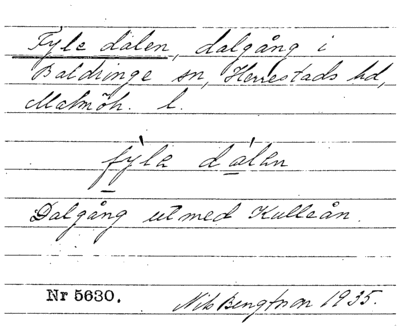 Fyle dalen, dalgång i
Baldringe sn, Herrestads hd,
Malmöh. l.
fỳla dálen
Dalgång utmed Kulleån.
Nr 5630. Nils Bengtson 1935.